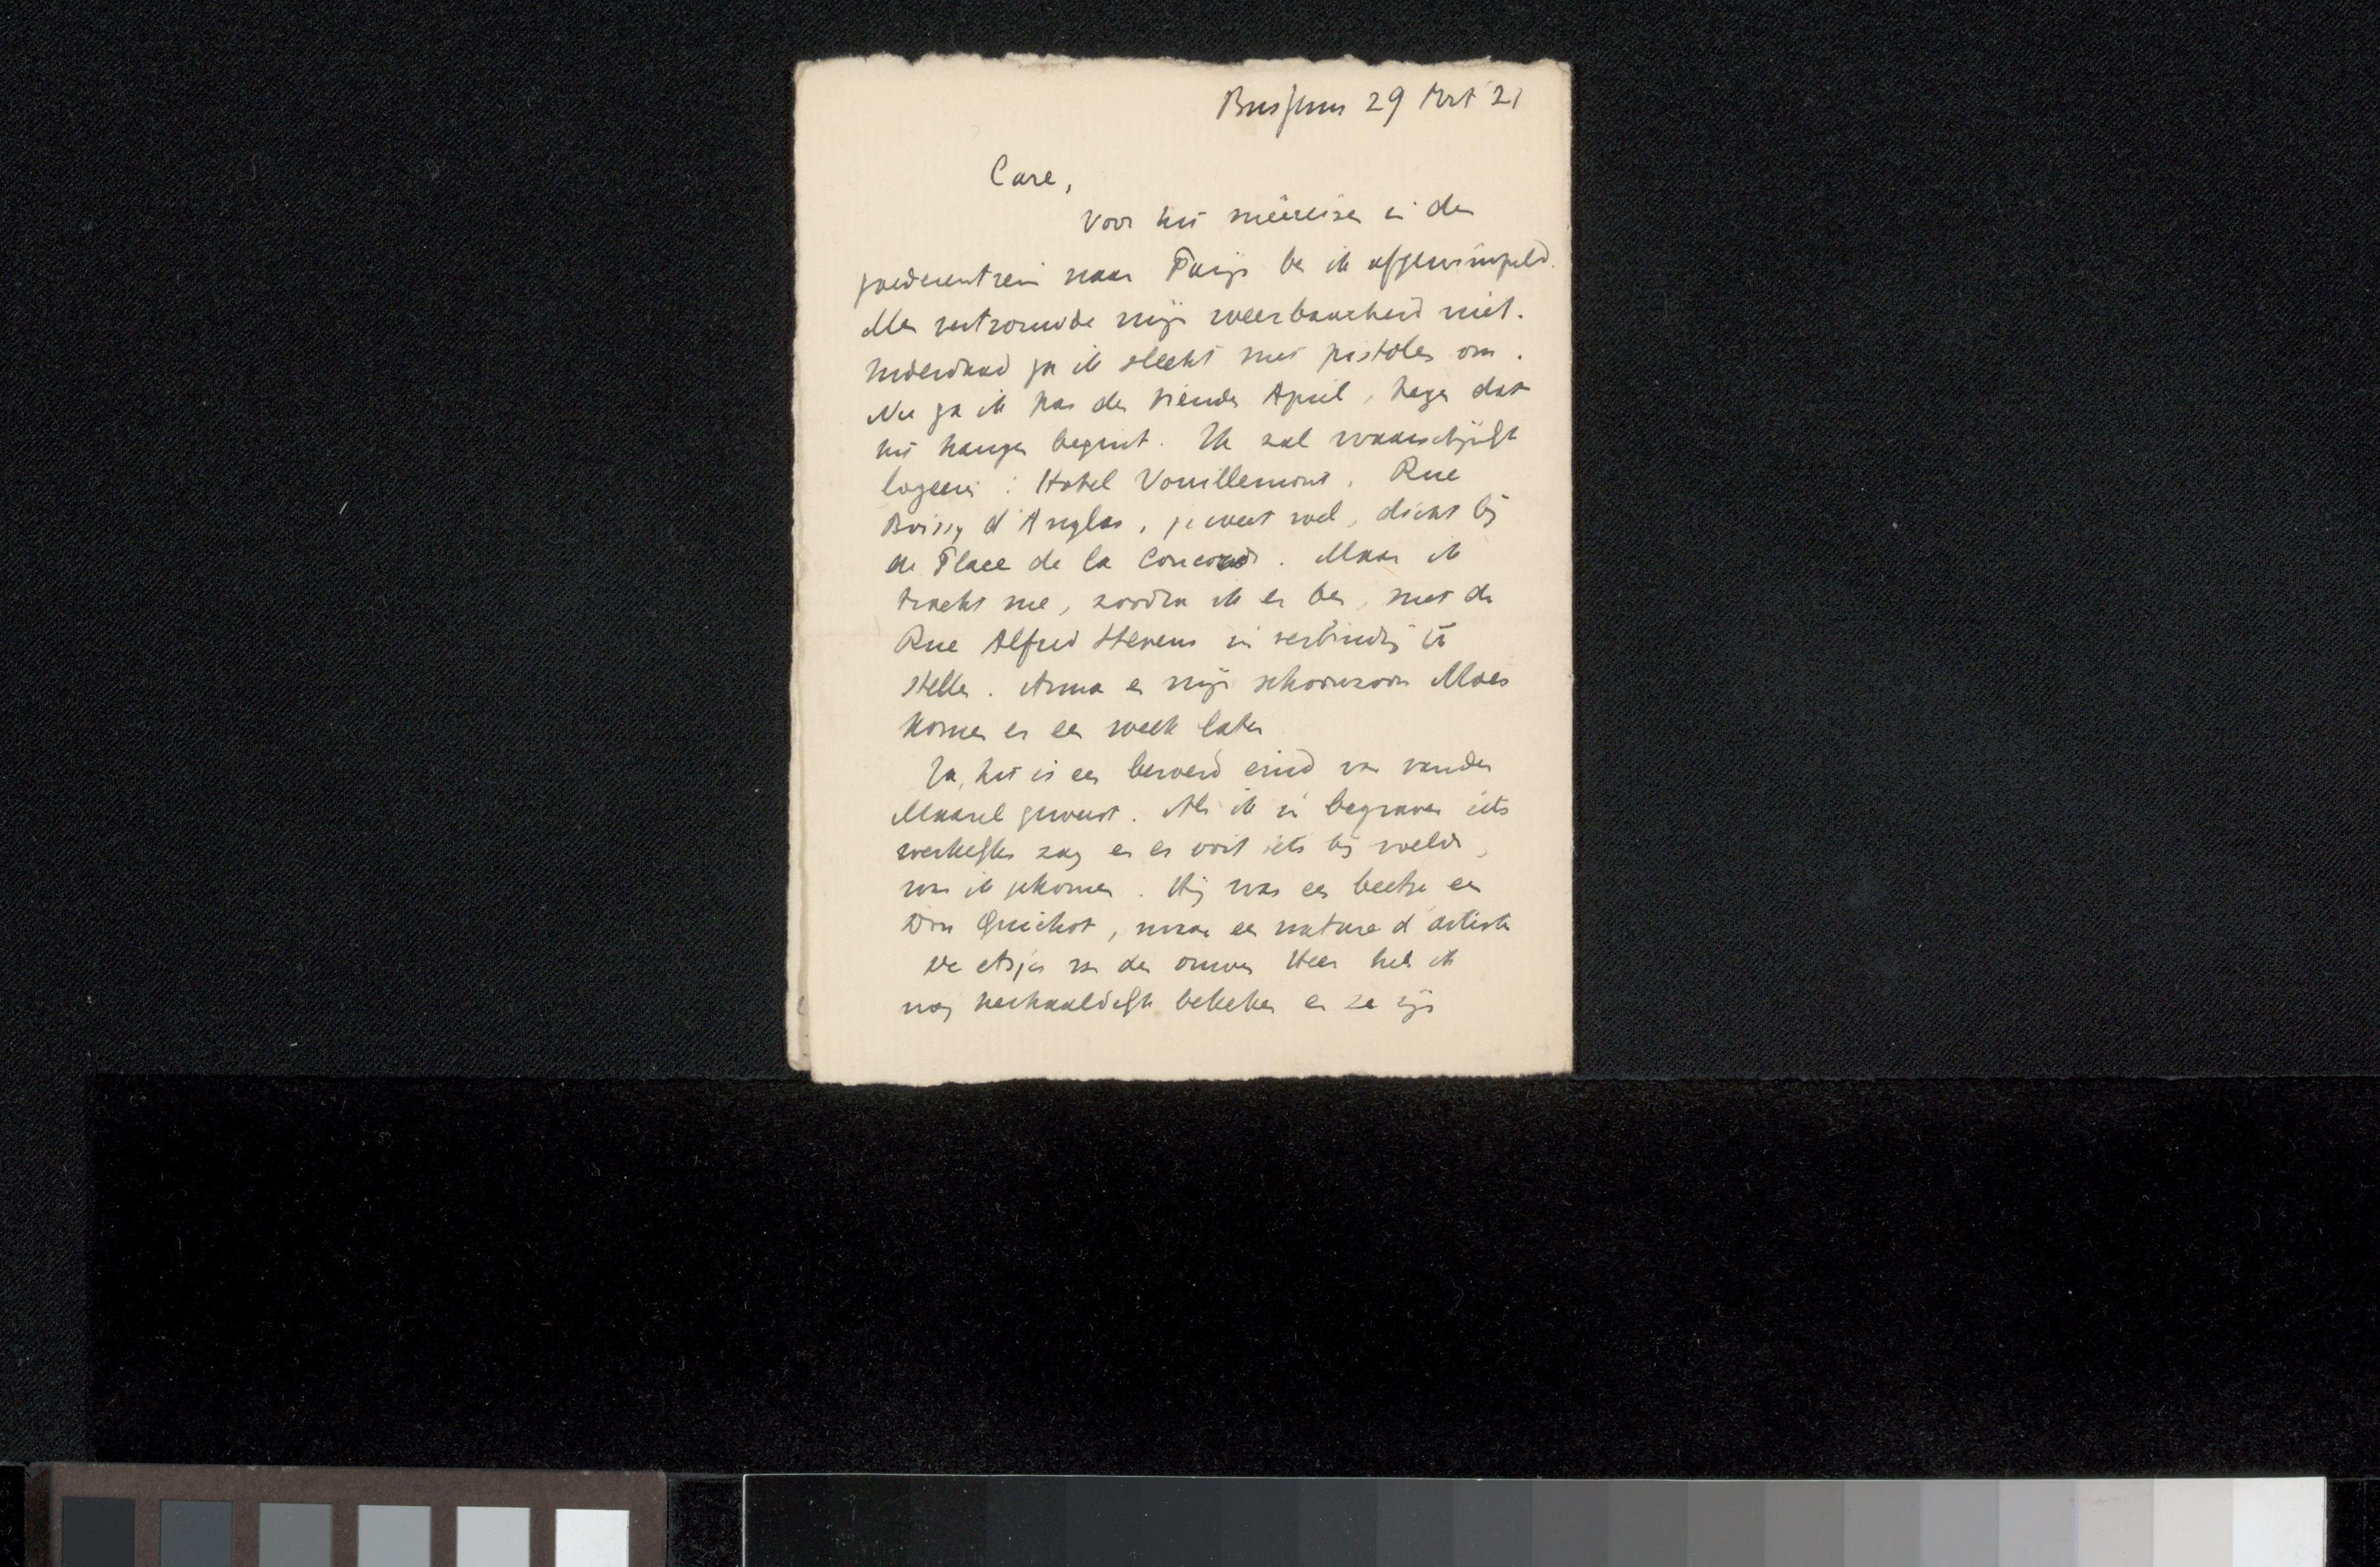 Bussum 29 Mrt '21
Care,
Voor het meereizen in den
goederentrein naar Parijs ben ik afgewimpeld.
Men vertrouwde mijn weerbaarheid niet.
Inderdaad ga ik slecht met pistolen om.
Nu ga ik pas den tienden April, tegen dat
het hangen begint. Ik zal waarschijnlijk
logeeren: Hotel Vouillemont, Rue
Boissy d'Anglas, je weet wel, dicht bij
de Place de la Concorde. Maar ik
tracht me, zoodra ik er ben, met de
Rue Alfred Stevens in verbinding te
stellen. Anna en mijn schoonzoon Maes
komen er een week later
Ja, het is een beroerd eind van van der
Maarel geweest. Als ik in begraven iets
werkelijks zag en er ooit iets bij voelde,
was ik gekomen. Hij was een beetje een
Don Quichot, maar een nature d'artiste
De etsjes van den ouwen Heer heb ik
nog herhaaldelijk bekeken en ze zijn